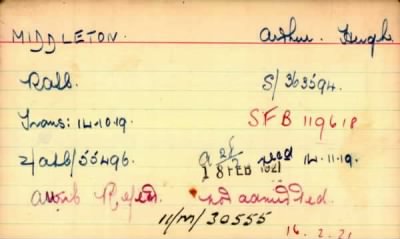 MIDDLETON. Arthur. Hugh.
RASC. S/363594.
Trans: 14.10.19. SFB 119618
2/alb/55496. recd 14.11.19.
18 FEB 1921
not admitted.
11/M/30555
16.2.21